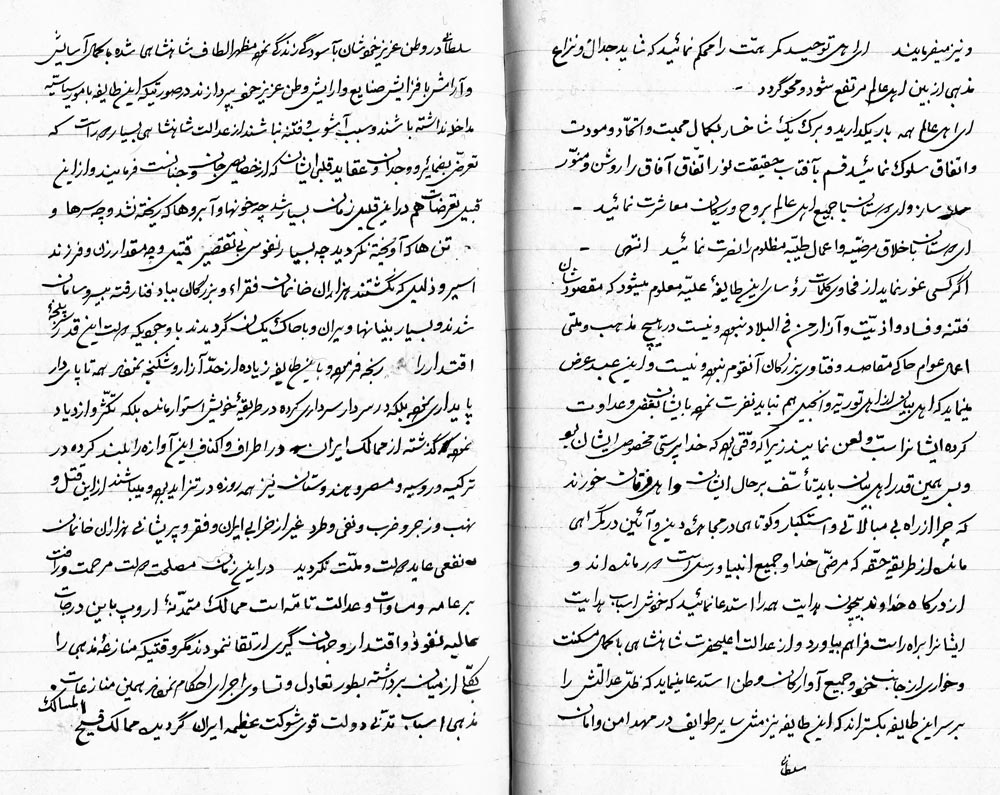 و نیز میفرمایند ای اهل توحید کمر همت را محکم نمائید که شاید جدال و نزاع
مذهبی از بین اهل عالم مرتفع شود و محو گردد
ای اهل عالم همه بار یکدارید و برگ یک شاخسار بکمال محبت و اتحاد و مودت
و اتفاق سلوک نمائید قسم بآفتاب حقیقت نور اتفاق آفاق را روشن و منوّر
سازد ای دوستان با جمیع اهل عالم بروح و ریحان معاشرت نمائید
ای دوستان باخلاق مرضیّه و اعمال طیّبه مظلوم را نصرت نمائید انتهی
اگر کسی غور نماید از فحاوی کلمات رؤسای این طایفهٔ علیّه معلوم میشود که مقصودشان
فتنه و فساد و اذیّت و آزار احدی فی البلاد نبوده و نیست در هیچ مذهب و ملتی
اعمال عوام حاکی مقاصد و فتاوی بزرگان آنقوم نبوده و نیست و این عبد عرض
مینماید که اهل بیان از اهل توریة و انجیل هم نباید نفرت نموده بایشان بغض و عداوت
کرده ایشانرا سب و لعن نمایند زیرا که وقتی بود که خدا پرستی مخصوص ایشان بود
و بس همین قدر اهل بیان باید تأسّف بر حال ایشان و اهل فرقان خورند
که چرا از راه بی مبالاتی و استکبار و کوتاهی در مجاهدهٔ دین و آئین در گمراهی
مانده از طریقهٔ حقّه که مرضیّ خدا و جمیع انبیا و رسل است دور مانده اند و
از درگاه خداوند بیچون هدایت همه را استدعا نمائید که خودش اسباب هدایت
ایشانرا براه راست فراهم بیاورد و از عدالت اعلیحضرت شاهنشاهی با کمال مسکنت
و خواری از جانب خود و جمیع آوارگان وطن استدعا مینماید که ظلّ عدالتش را
بر سر این طایفه بگستراند که این طایفه نیز مثل سایر طوایف در مهد امن و امان
سلطانی
سلطانی در وطن عزیز خودشان بآسودگی زندگی نموده مظهر الطاف شاهنشاهی شده با کمال آسایش
و آرامش بافزایش صنایع و آرایش وطن عزیز خود بپردازند در صورتیکه این طایفه بامور سیاسیّه
مداخله نداشته باشند و سبب آشوب و فتنه نباشند از عدالت شاهنشاهی بسیار دور است که
تعرّض بضمائر و وجدان و عقاید قلبی ایشان که از خصایص جان و جنانست فرمایند و از این
قبیل تعرضات هم در این قلیل زمان بسیار شد چه خونها و آبروها که ریخته نشد و چه سرها و
تن ها که آویخته نگردید چه بسیار نفوسی بی تقصیر قتیل و چه مقدار زن و فرزند
اسیر و ذلیل که نگشتند هزاران خانمان فقراء و بزرگان بباد فنا رفته بی سر و سامان
شدند و بسیار بنیانها ویران و با خاک یکسان گردیدند با وجودیکه دولت این قدر پنجهٔ
اقتدار را رنجه فرموده و باین طایفه زیاده از حدّ آزار و شکنجه نموده همه تا پای دار
پایداری نموده بلکه در سردار سرداری کرده در طریقهٔ خویش استوار مانده بلکه تکثّر و ازدیاد
نموده گذشته از ممالک ایران در اطراف و اکناف این آوازه را بلند کرده در
ترکیه و روسیه و مصر و هندوستان نیز همه روزه در تزاید بوده و میباشند از این قتل و
نهب و زجر و ضرب و نفی و طرد غیر از خرابی ایران و فقر و پریشانی هزاران خانمان
نفعی عاید دولت و ملّت نگردید در این زمان مصلحت دولت مرحمت و رأفت
بر عامه و مساوات و عدالت تامّه است ممالک متمدّنهٔ اروپ باین درجات
عالیهٔ نفوذ و اقتدار و جهان گیری ارتقا ننمودند مگر وقتیکه منازعهٔ مذهبی را
کلّی از میان برداشته بطور تعادل و تساوی اجرای احکام نموده همین منازعات
مذهبی اسباب تدنّی دولت قوی شوکت عظیمهٔ ایران گردیده ممالک فسیح المسالک